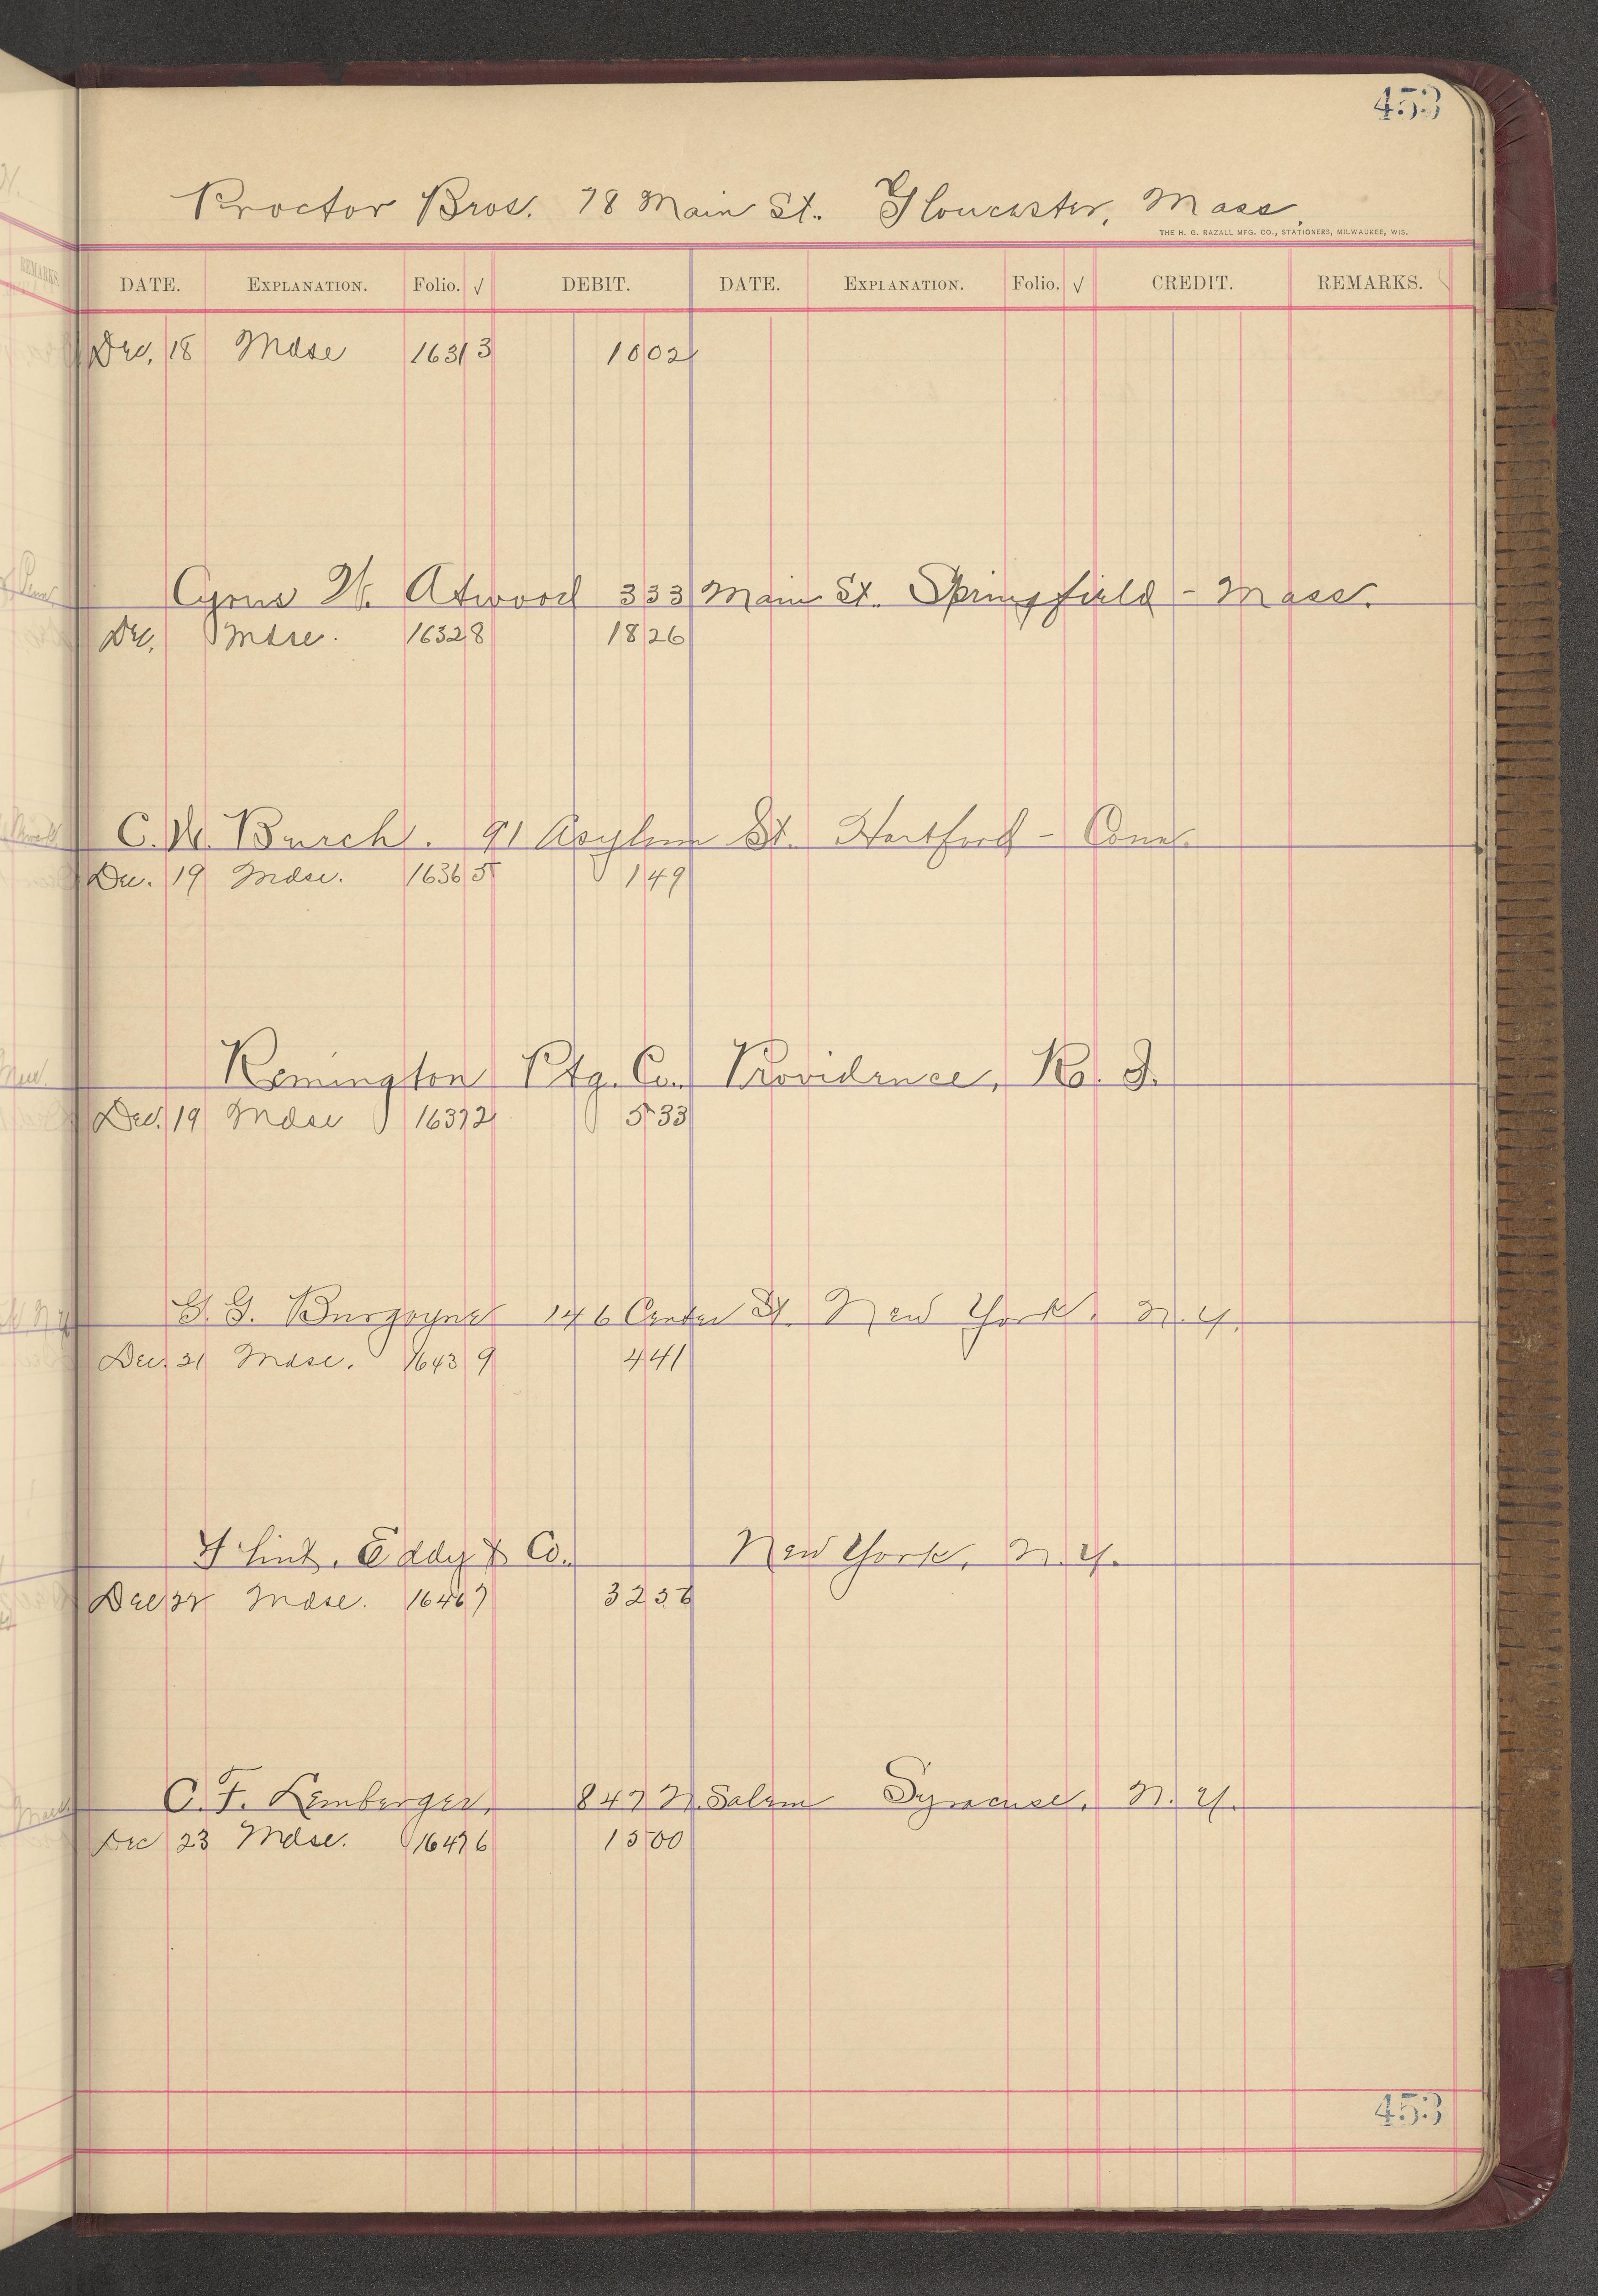 453
Proctor Bros. 78 Main St. Gloucester, Mass.
THE H. G. RAZALL MFG. CO., STATIONERS, MILWAUKEE, WIS.
DATE. EXPLANATION. Folio. √ DEBIT. DATE. EXPLANATION. Folio. √ CREDIT. REMARKS.
Dec. 18 Mdse 16313 1002
Cyrus W. Atwood 333 Main St. Springfield - Mass.
Dec. Mdse. 16328 1826
C. W. Burch. 91 Asylum St. Hartford - Conn.
Dec. 19 Mdse. 16365 149
Remington Ptg. Co. Providence, R. I.
Dec. 19 Mdse 16372 533
G. G. Burgoyne 146 Center St. New York, N.Y.
Dec. 21 Mdse. 16439 441
Flint, Eddy & Co. New York, N.Y.
Dec 22 Mdse. 16467 3256
C. F. Lemberger, 847 N. Salem Syracuse, N.Y.
Dec 23 Mdse. 16476 1500
453